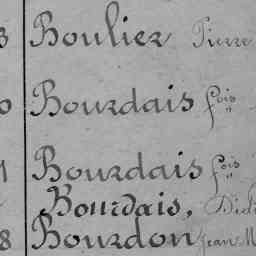 3 Boulier Pierre
0 Bourdais fois
1 Bourdais fois
Bourdais, Didi
8 Bourdon Jean M